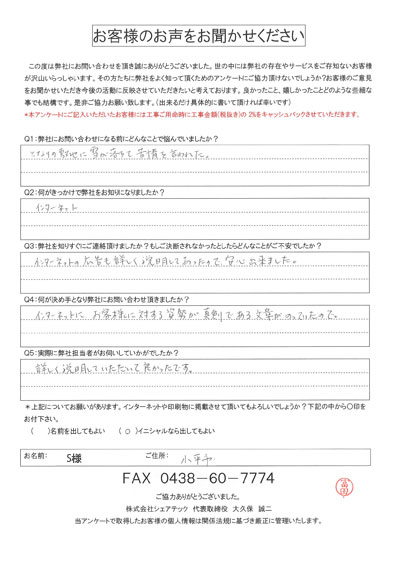 お客様のお声をお聞かせください
この度は弊社にお問い合わせを頂き誠にありがとうございました。世の中には弊社の存在やサービスをご存知ないお客様
が沢山いらっしゃいます。その方たちに弊社をよく知って頂くためのアンケートにご協力頂けないでしょうか?お客様のご意見
をお聞かせいただき今後の活動に反映させていただきたいと考えております。良かったこと、嬉しかったことどのような些細な
事でも結構です。是非ご協力お願い致します。(出来るだけ具体的に書いて頂ければ幸いです)
*本アンケートにご記入いただいたお客様には工事ご用命時に工事金額(税抜き)の 2%をキャッシュバックさせていただきます。
Q1:弊社にお問い合わせになる前にどんなことで悩んでいましたか?
となりの敷地に雪が落ちて苦情を言われた。
Q2:何がきっかけで弊社をお知りになりましたか?
インターネット
Q3:弊社を知りすぐにご連絡頂けましたか?もしご決断されなかったとしたらどんなことがご不安でしたか?
インターネットの広告も詳しく説明してあったので、安心出来ました。
Q4:何が決め手となり弊社にお問い合わせ頂きましたか?
インターネットに お客様に対する姿勢が真剣である文章がのっていたので。
Q5:実際に弊社担当者がお伺いしていかがでしたか?
詳しく説明していただいて良かったです。
*上記についてお願いがあります。インターネットや印刷物に掲載させて頂いてもよろしいでしょうか?下記の中から〇印を
お付下さい。
( )名前を出してもよい ( ○ )イニシャルなら出してもよい
お名前: S様 ご住所: 小平市
FAX 0438-60-7774
ご協力ありがとうございました。
株式会社シェアテック 代表取締役 大久保 誠二
当アンケートで取得したお客様の個人情報は関係法規に基づき厳正に管理いたします。